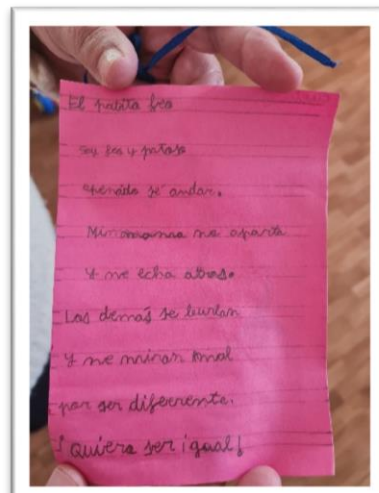 El patito feo
soy feo y patoso
apenas sé andar.
Mi mamá me aparta
Y me echa atrás.
Los demás se burlan
Y me miran mal
por ser diferente.
¡Quiero ser igual!